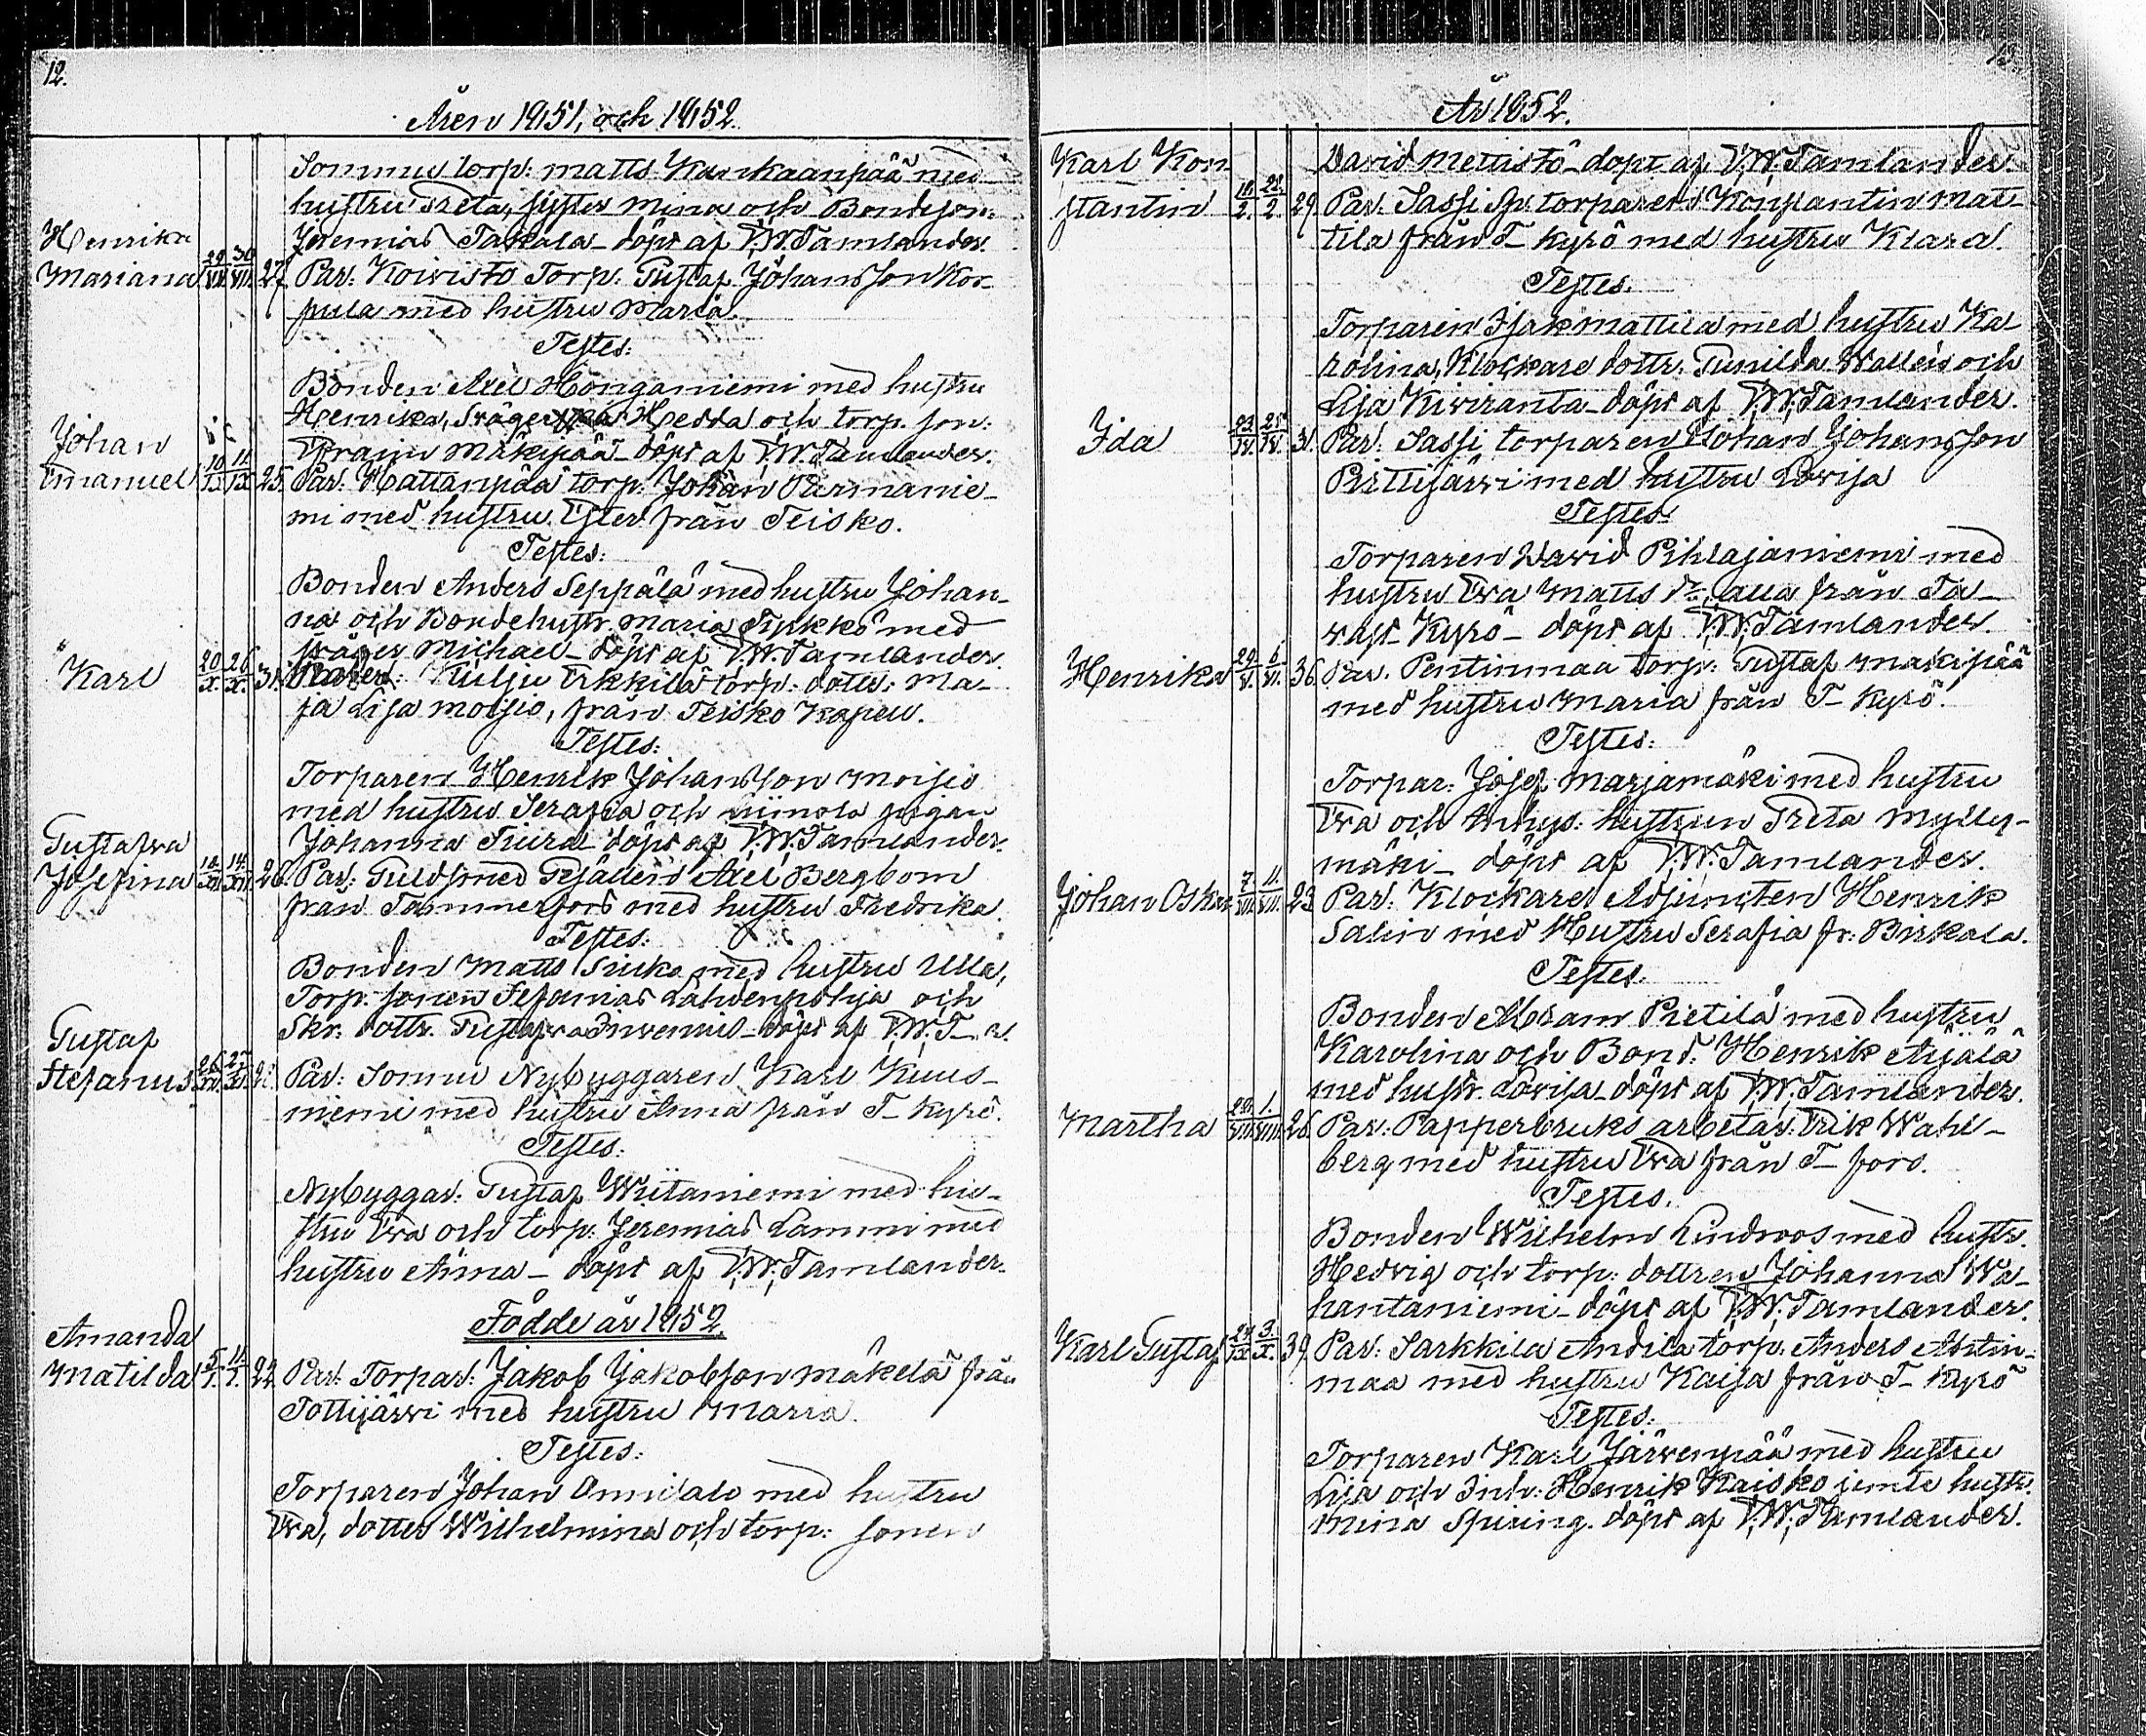 12.
Åren 1851, och 1852.
Sommu torp: Matts Kankaanpää med
hustru Greta, syster Mina och Bondeson:
Jeremias Takala döpt af V.W. Tamlander.
Henrika
Mariana 29/VII 30/VII 27. Par: Koivisto Torp: Gustaf Johansson Kor-
pula med hustru Maria.
Testes:
Bonden Axel Honganiemi med hustru
Henrika, Svägerskä Hedda och torp. son:
Efraim Mäkipää döpt af V.W. Tamlander.
Johan
Emanuel 10/IX 11/IX 25. Par: Hattanpää torp: Johan Surmanie-
mi med hustru Ester från Teisko.
Testes:
Bonden Anders Seppälä med hustru Johan-
na och Bondehustr. Maria med
svåger Michael döpt af V.W. Tamlander.
Karl 20/X. 26/X. 31. Kulju Erkkilä torp: dottr: Ma-
ja Lisa Moisio, från Teisko Kapell.
Testes:
Torparen Henrik Johansson Moisio
med hustru Serafia och pigan
Johanna döpt af V.W. Tamlander.
Gustafva
Josefina 12/XI 14/XI 26. Par: Guldsmed Gesällen Axel Bergbom
från Tammerfors med hustru Fredrika.
Testes:
Bonden Matts med hustru Ulla,
Torp. sonen Stefanias Lähdenpohja och
Skr. dottr. Gustafva döpt af V.W. T—r.
Gustaf
Stefanus 26/XII. 27/XII. Par: Sommu Nybyggaren Karl Kuus-
niemi med hustru Anna från T— Kyrö.
Testes:
Nybyggar: Gustaf Wiitaniemi med hu-
stru Eva och torp: Jeremias Lammi med
hustru Anna — döpt af V.W. Tamlander.
Födde år 1852.
Amanda
Matilda 5/1. 11/1. 22. Par: Torpar: Jakob Jakobsson Mäkelä från
Tottijärvi med hustru Maria.
Testes:
Torparen Johan med hustru
Eva, dotter Wilhelmina och torp: sonen
13.
År 1852.
David Mettistö — döpt af V.W. Tamlander.
Karl Kon
stantin 18/2. 22/2. 29. Par: Sassi Sp. torparen Konstantin Mat-
tila från T— Kyrö med hustru Klara.
Testes.
Torparen Isak Mattila med hustru Ka-
rolina, Klockare dottr. Gunilda Wallen och
Lisa Kiviranta — döpt af V.W. Tamlander.
Ida 23/IV. 25/IV. 31. Par: Sassi torparen Johan Johansson
Perttijärvi med hustru Lovisa
Testes.
Torparen David Pihlajaniemi med
hustru Eva Matts dr, alla från Ta-
vast Kyrö — döpt af V.W. Tamlander.
Henrika 29/V. 6/VI. 36. Par. Pentinmaa torp: Gustaf Mäkipää
med hustru Maria från T— Kyrö.
Testes:
Torpar: Josef Marjamäki med hustru
Eva och Inhys: hustrun Greta Mylly-
mäki — döpt af V.W. Tamlander.
Johan Oskar 7/VII. 11/VII. 23. Par: Klockare Adjuncten Henrik
Salin med Hustru Serafia fr: Birkala.
Testes.
Bonden Abram Pietilä med hustru
Karolina och Bond: Henrik Äijälä
med hustr. Lovisa — döpt af V.W. Tamlander.
Martha 29/VII 1./VIII. 26. Par: Pappersbruks arbetar: Erik Wahl-
berg med hustru Eva från T— fors.
Testes.
Bonden Wilhelm Lindroos med hustr.
Hedvig och torp: dottren Johanna Wa-
hantaniemi — döpt af V.W. Tamlander.
Karl Gustaf 29/IX 3./X. 39. Par: Sarkkila Andila torp. Anders Antin-
maa med hustru Kaisa från T— Kyrö
Testes:
Torparen Karl Järvenpää med hustru
Lisa och Inh: Henrik Kaisko jemte hustr:
Mina Spiring. döpt af V.W. Tamlander.